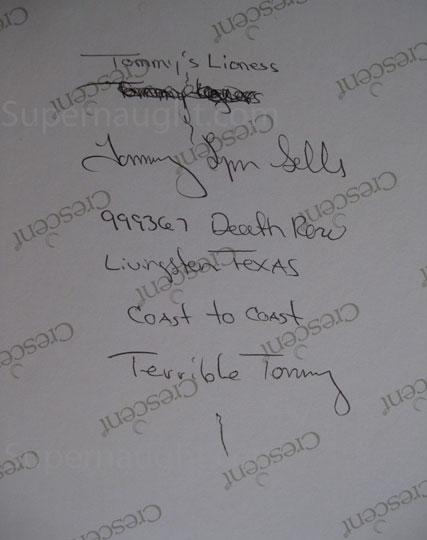 Tommy's Lioness
Tommy
Tommy Lynn Sells
999367 Death Row
Livingston Texas
Coast to Coast
Terrible Tommy
Supernaught.com
Supernaught.com
Crescent
Crescent
Crescent
Crescent
Crescent
Crescent
Crescent
Crescent
Crescent
Crescent
Crescent
Crescent